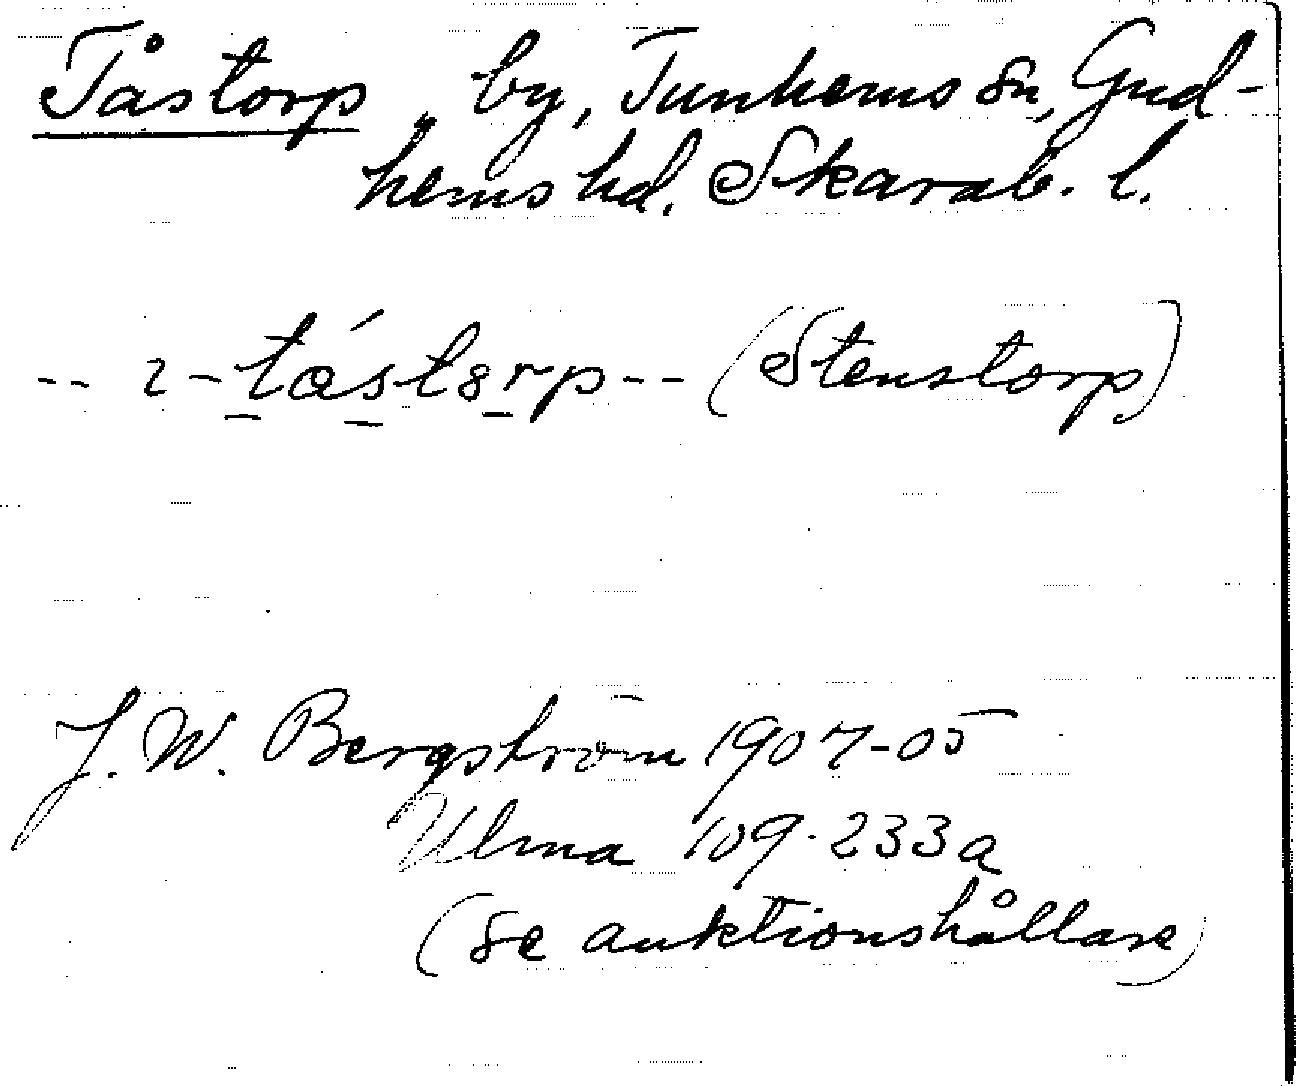 Tåstorp, by, Tunhems sn, Gud-
hems hd. Skarab. l.
-- ɿ - tás tɞrp -- (Stenstorp)
J. W. Bergström 1907-05
Ulma 109.233a
(se auktionshållare)